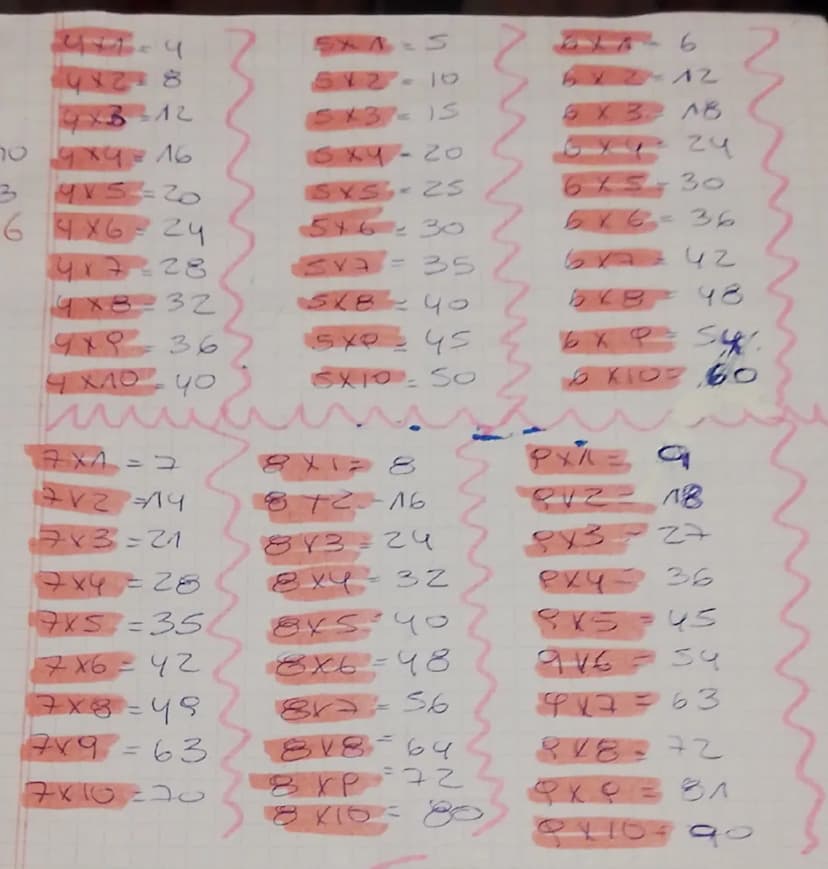 4x1=4
4x2=8
4x3=12
4x4=16
4x5=20
4x6=24
4x7=28
4x8=32
4x9=36
4x10=40
5x1=5
5x2=10
5x3=15
5x4=20
5x5=25
5x6=30
5x7=35
5x8=40
5x9=45
5x10=50
6x1=6
6x2=12
6x3=18
6x4=24
6x5=30
6x6=36
6x7=42
6x8=48
6x9=54
6x10=60
7x1=7
7x2=14
7x3=21
7x4=28
7x5=35
7x6=42
7x8=49
7x9=63
7x10=70
8x1=8
8x2=16
8x3=24
8x4=32
8x5=40
8x6=48
8x7=56
8x8=64
8x9=72
8x10=80
9x1=9
9x2=18
9x3=27
9x4=36
9x5=45
9x6=54
9x7=63
9x8=72
9x9=81
9x10=90